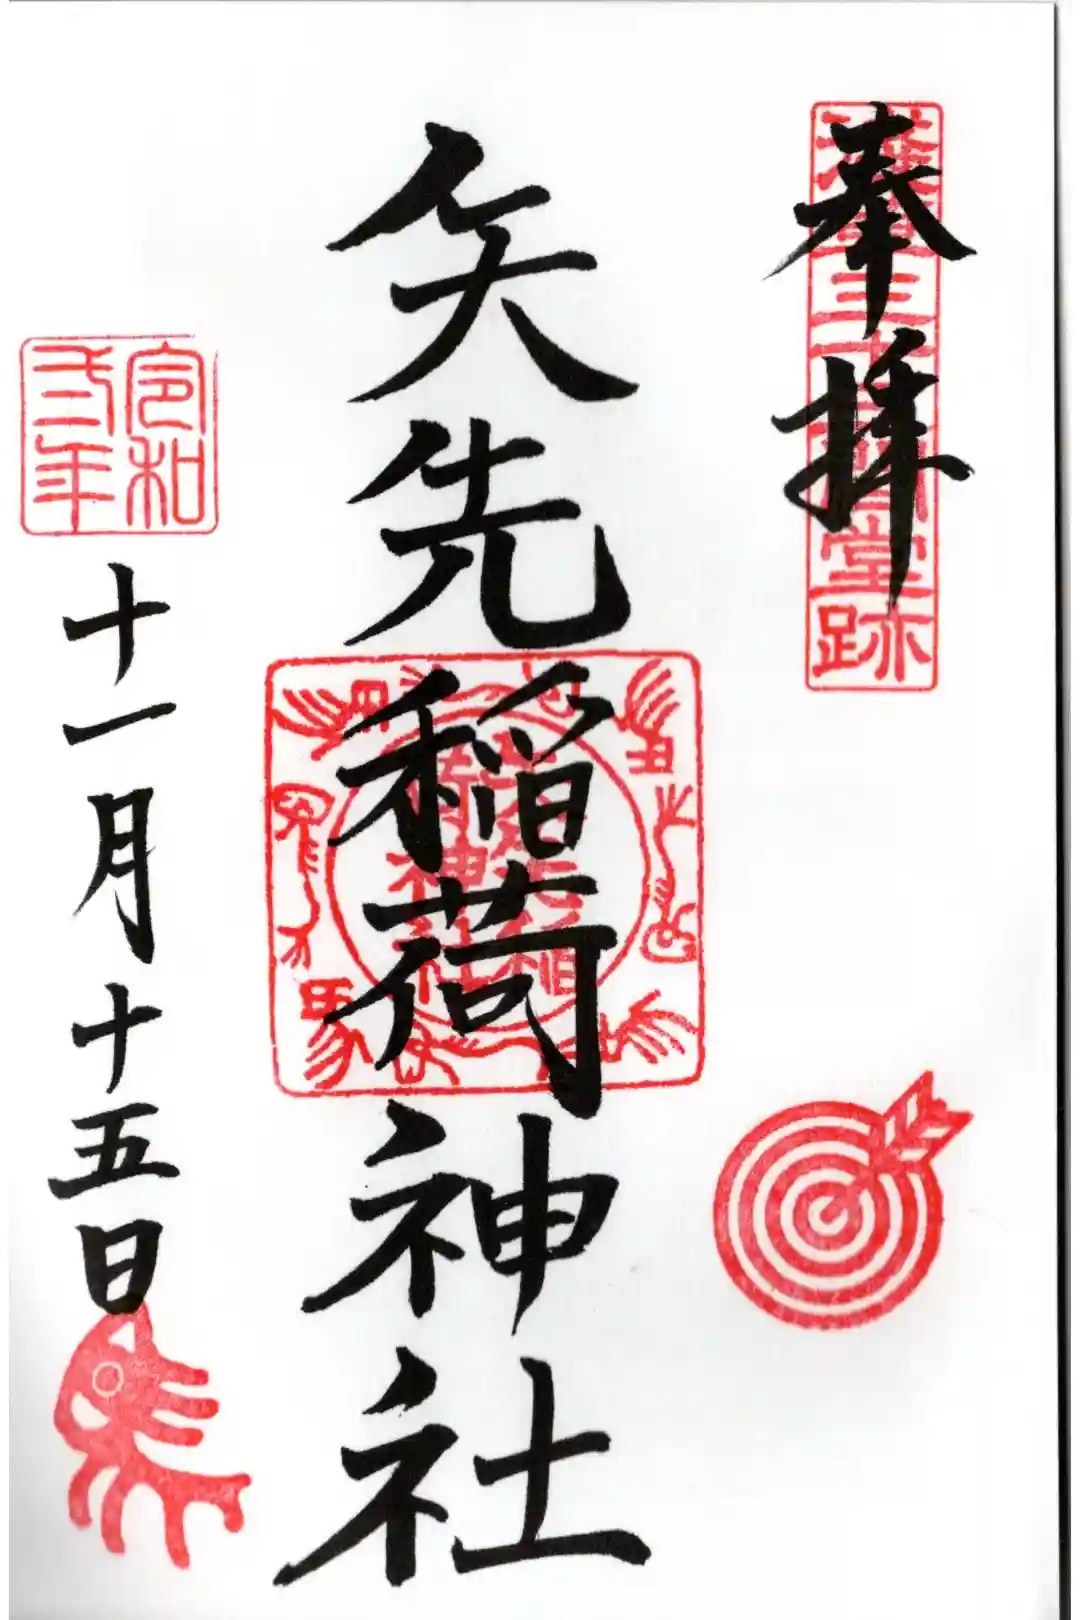 奉拝
三十三間堂跡
矢先稲荷神社
令和
弐年
十一月十五日